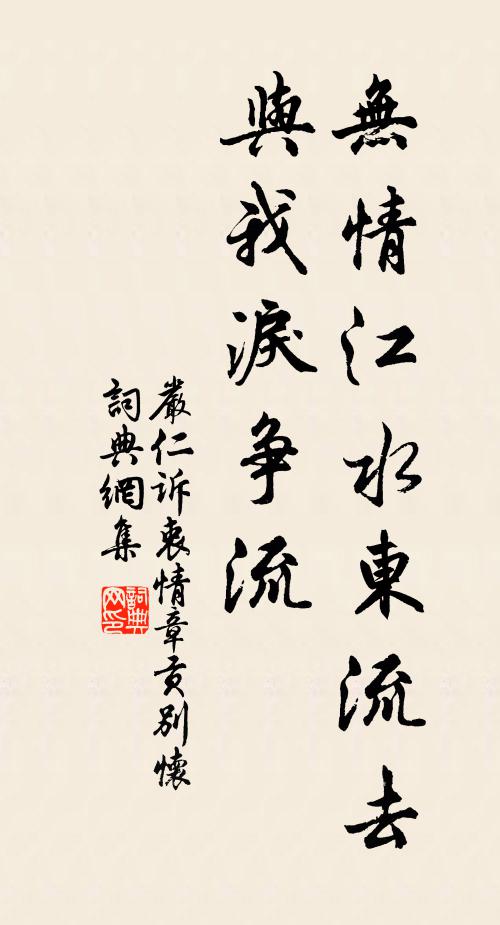 無情江水東流去
與我淚爭流
嚴仁訴衷情章貢別懷
詞典網集
詞典网印